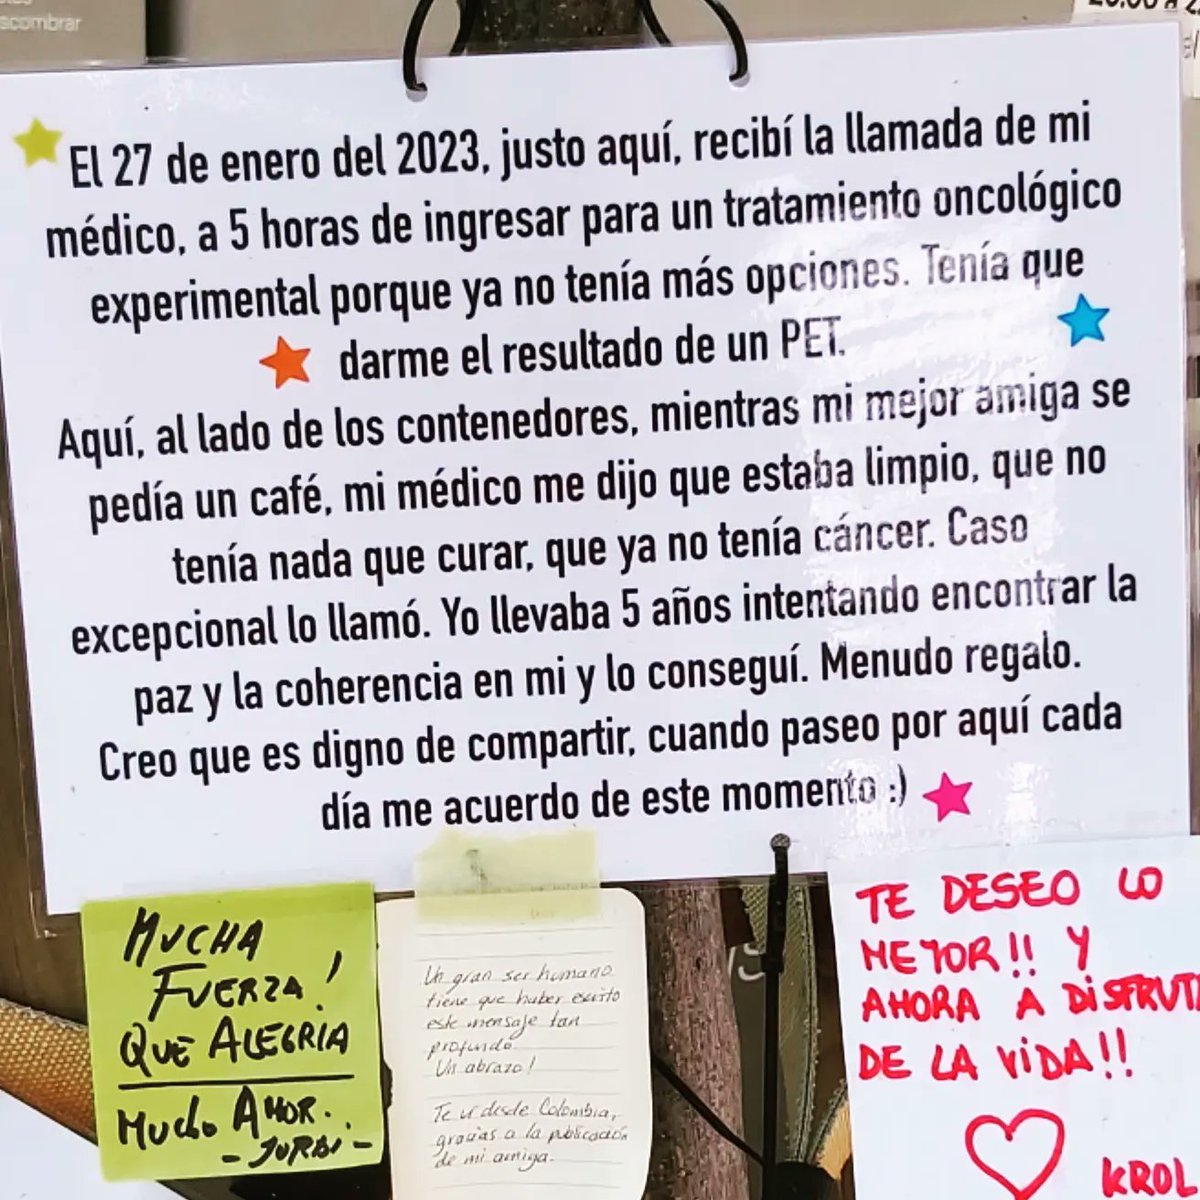 scombrar
El 27 de enero del 2023, justo aquí, recibí la llamada de mi
médico, a 5 horas de ingresar para un tratamiento oncológico
experimental porque ya no tenía más opciones. Tenía que
darme el resultado de un PET.
Aquí, al lado de los contenedores, mientras mi mejor amiga se
pedía un café, mi médico me dijo que estaba limpio, que no
tenía nada que curar, que ya no tenía cáncer. Caso
excepcional lo llamó. Yo llevaba 5 años intentando encontrar la
paz y la coherencia en mi y lo conseguí. Menudo regalo.
Creo que es digno de compartir, cuando paseo por aquí cada
día me acuerdo de este momento :)
MUCHA
FUERZA!
QUE ALEGRIA
MUCHO AMOR.
- JORDI -
Un gran ser humano
tiene que haber escrito
este mensaje tan
profundo
Un abrazo!
Te vi desde Colombia,
gracias a la publicación
de mi amiga.
TE DESEO LO
MEJOR!! Y
AHORA A DISFRUT
DE LA VIDA!!
KROL